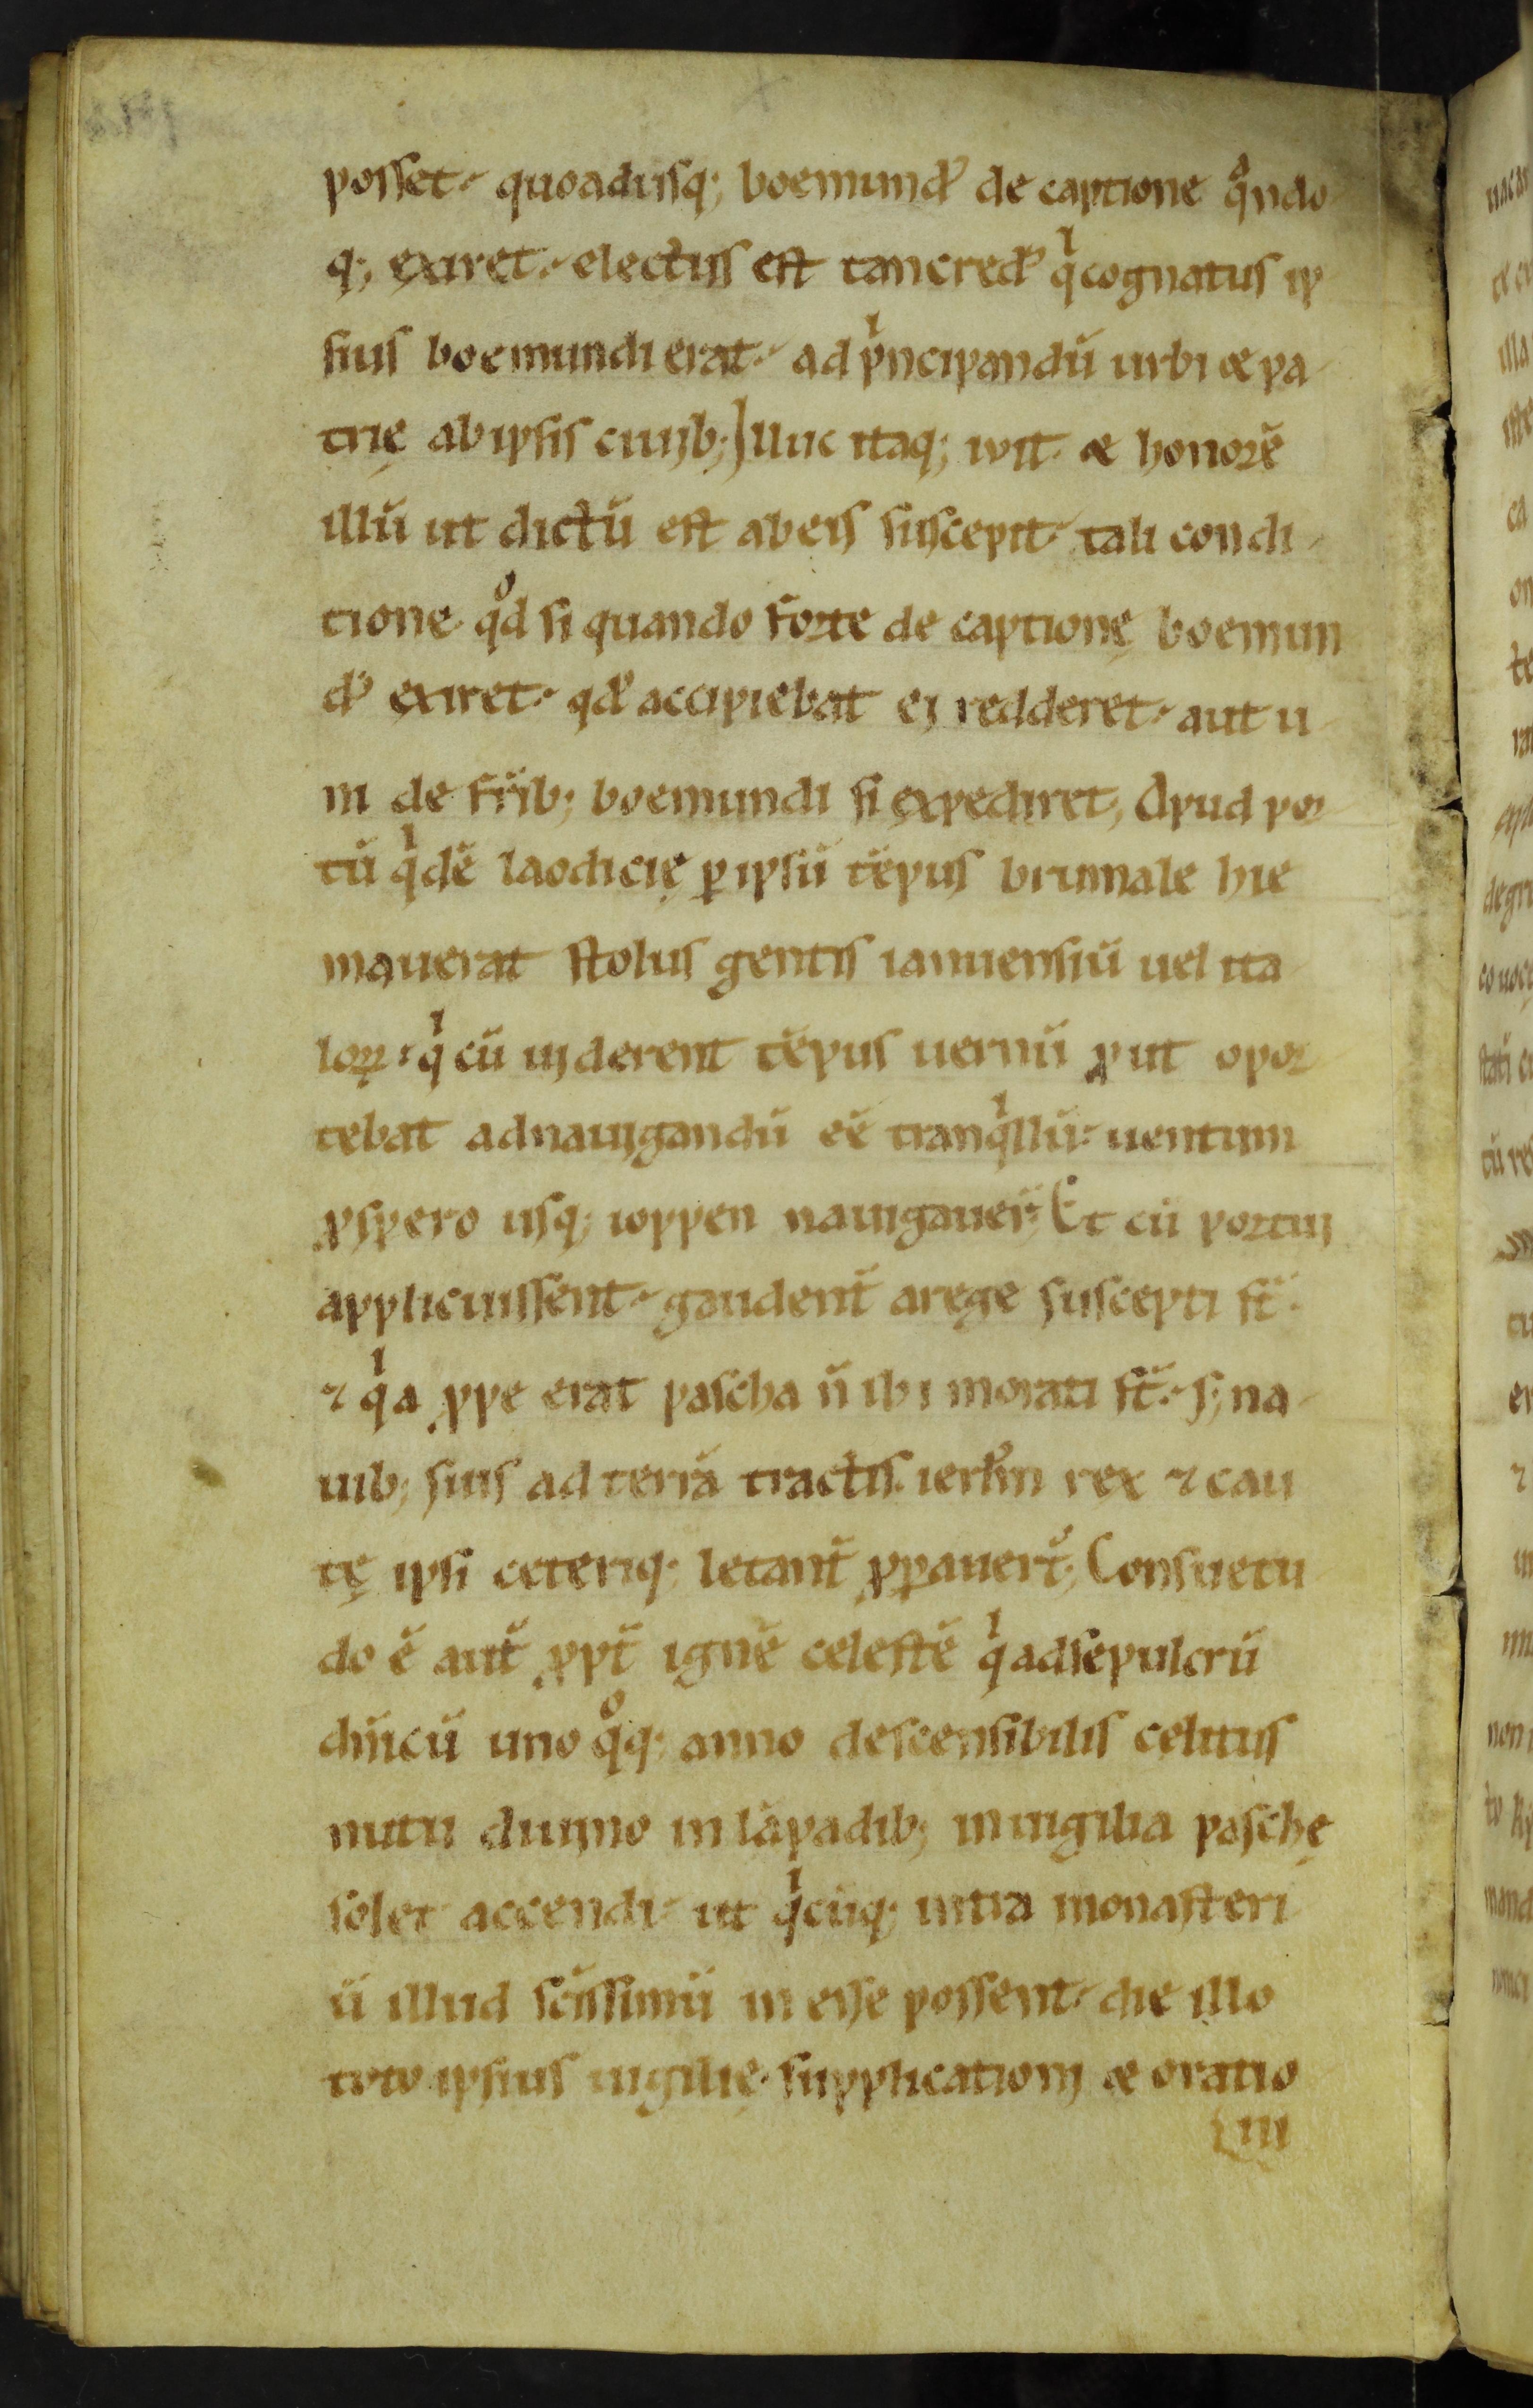 posset quoadusq; boemund᷒ de captione qͣndo
q; exiret. electus est tancred᷒ qͥ cognatus ip
sius boemundi erat. ad pͥncipandū urbi & pa
trię ab ipsis ciuib; Illuc itaq; iuit. & honorē
illū ut dictū est ab eis suscepit. tali condi
tione. qͦd si quando forte de captionę boemun
d᷒ exiret. qd̓ accipiebat ei redderet. aut u
ni de frīb; boemundi si expediret; Apud por
tū qͥdē laodicię ꝑ ipsū tēpus brumale hie
mauerat stolus gentis ianuensiū uel ita
loꝝ. qͥ cū uiderent tēpus uernū ꝓut opor
tebat ad nauigandū eē tranqͥllū. uentum
ꝓspero usq; ioppen nauigauer̄; Et cū portui
applicuissent. gaudent̄ a rege suscepti st̄.
⁊ qͥa ꝓpe erat pascha n̄ ibi morati st̄. s; na
uib; suis ad terrā tractis. ierłm rex ⁊ cau
tę ipsi ceteriq; letant̄ ꝓꝑauer̄t; Consuetu
do ē aut̄ ꝓpt̄ ignē celestē qͥ ad sepulcrū
dn̄icū uno qͦq; anno descensibilis celitus
nutu diuino in lāpadib; in uigilia paschę
solet accendi. ut qͥcūq; intra monasteri
ū illud scīssimū in esse possent. die illo
toto ipsius uigilię. supplicationi & oratio
ni